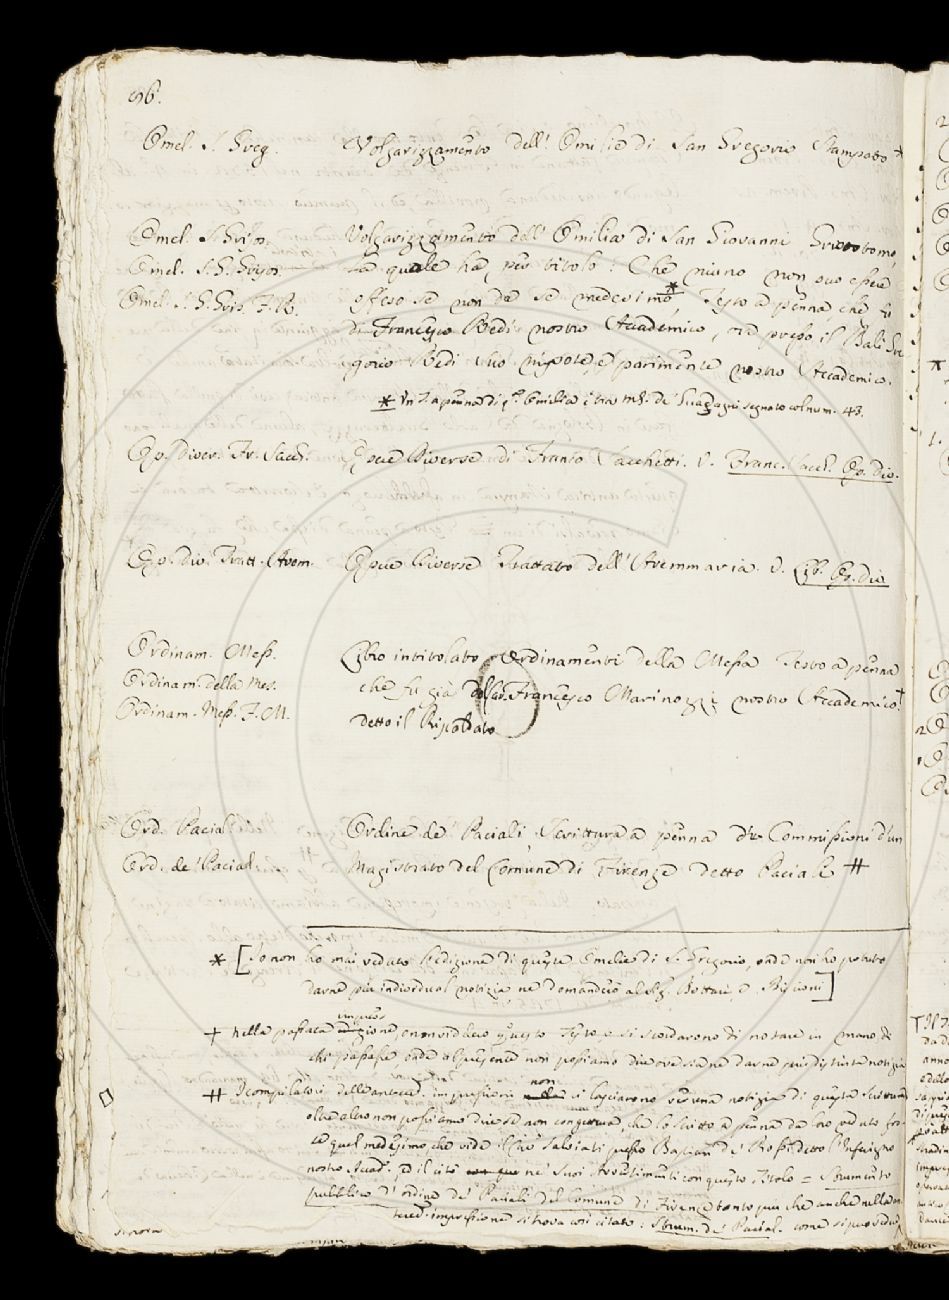 96.
Omel. S. Greg. Volgarizzamento dell' Omilie di San Gregorio Stampato
Omel. S. Gris. Volgarizzamento dell' Omilia di San Giovanni Grisostomo,
Omel. S. G. Grisos. La quale ha per titolo: Che niuno non può essere
Omel. S. G. Gris. F. R. offeso se non da se medesimo * Testo a penna che fu
di Francesco Redi nostro Accademico, ed presso il Balì Gre
gorio Redi suo nipote, e parimente nostro Accademico.
* Un T. a penna di q.ª Omilia è tra mß. de' Guadagni segnato col num. 43.
Op. diver. Fr. Sacch. Opere Diverse di Franco Sacchetti. V. Franc. Sacch. Op. div.
Op. div. Tratt. Avem. Opere Diverse Trattato dell' Avemmaria. V. Lib. Op. div
Ordinam. Mess. Libro intitolato Ordinamenti della Messa Testo a penna
Ordinam. della Mes. che fu già Francesco Marinozzi nostro Accademico †
Ordinam. Mess. F. M. detto il Riscaldato
Ord. Pacial. Ordine de' Paciali Scrittura a penna Commissioni d'un
Ord. de' Pacial. Magistrato del Comune di Firenze detto Paciale #
* [Io non ho mai veduto l'edizione di queste Omelie di S. Gregorio, onde non ho potuto
darne più individual notizia ne domanderò al Sig. Bottari, e Biscioni]
impres
† Nella passata questo Testo si scordarono di notare in mano di
chi passasse, onde al presente non possiamo dire ove sia, ne darne più distinta notizia
non
# I compilatori dell'anteced. impressione ci lasciarono veruna notizia di questa scrittura
oltre altro non possiamo dire se non congettura, che lo scritto a penna da loro veduto fos-
se quel medesimo che vide il Cav. Salviati presso Bastian de' Rossi detto l'Inferigno
nostro Acad., ed il citò ne' suoi Avvertimenti con questo Titolo = Strumento
pubblico d'ordine de' Paciali del Comune di Firenze tanto più che anche nella an
teced. impressione si trova così citato: Strum. de' Pacial. come si può vedere